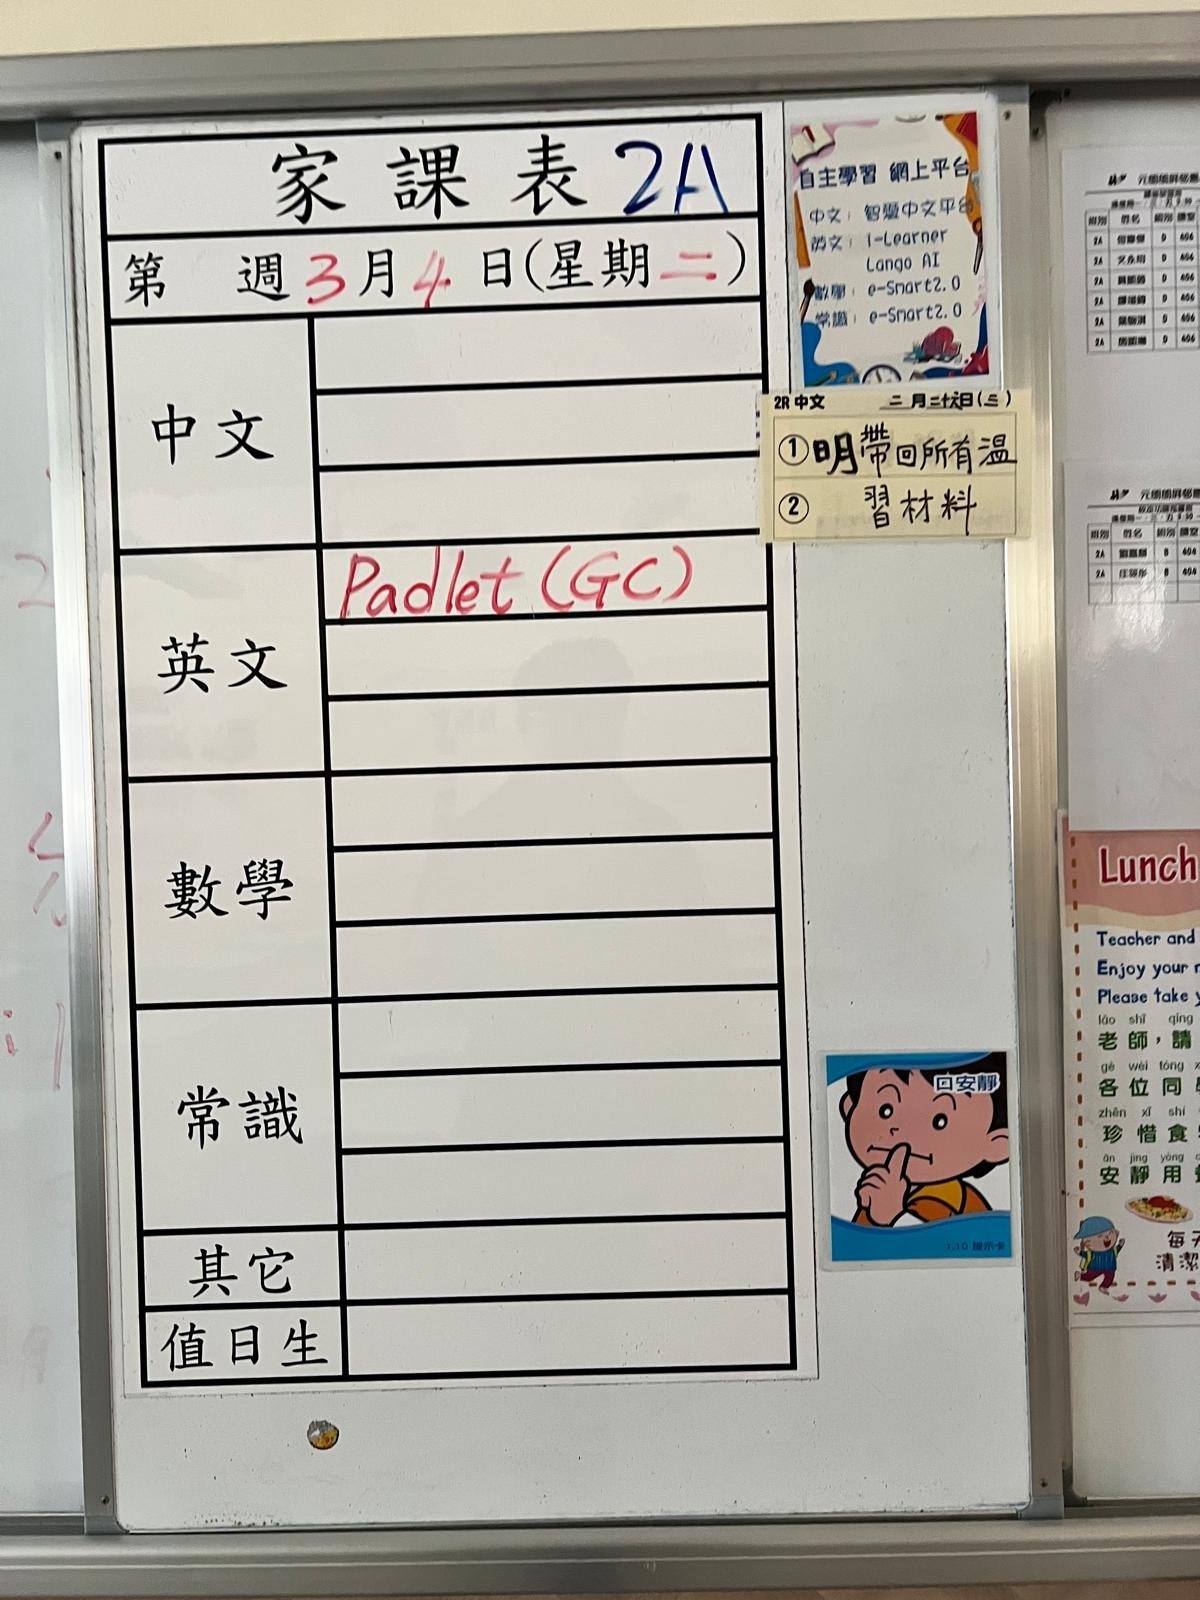 家課表 2A
第 週3月4日(星期二)
中文
英文
Padlet (GC)
數學
常識
其它
值日生
自主學習 網上平台
中文: 智愛中文平台
英文: i-Learner
Lango AI
數學: e-Smart2.0
常識: e-Smart2.0
2R 中文 二月二十六日(三)
① 明帶回所有溫
② 習材料
口安靜
1.10 提示卡
組別 姓名 組別 課室
2A D 406
2A D 406
2A D 406
2A D 406
2A D 406
2A D 406
2A B 404
2A B 404
Lunch
Teacher and
Enjoy your
Please take
lǎo shī qǐng
老師，請
gè wèi tóng
各位同
zhēn xī shí
珍惜食
ān jìng yòng
安靜用
每天
清潔